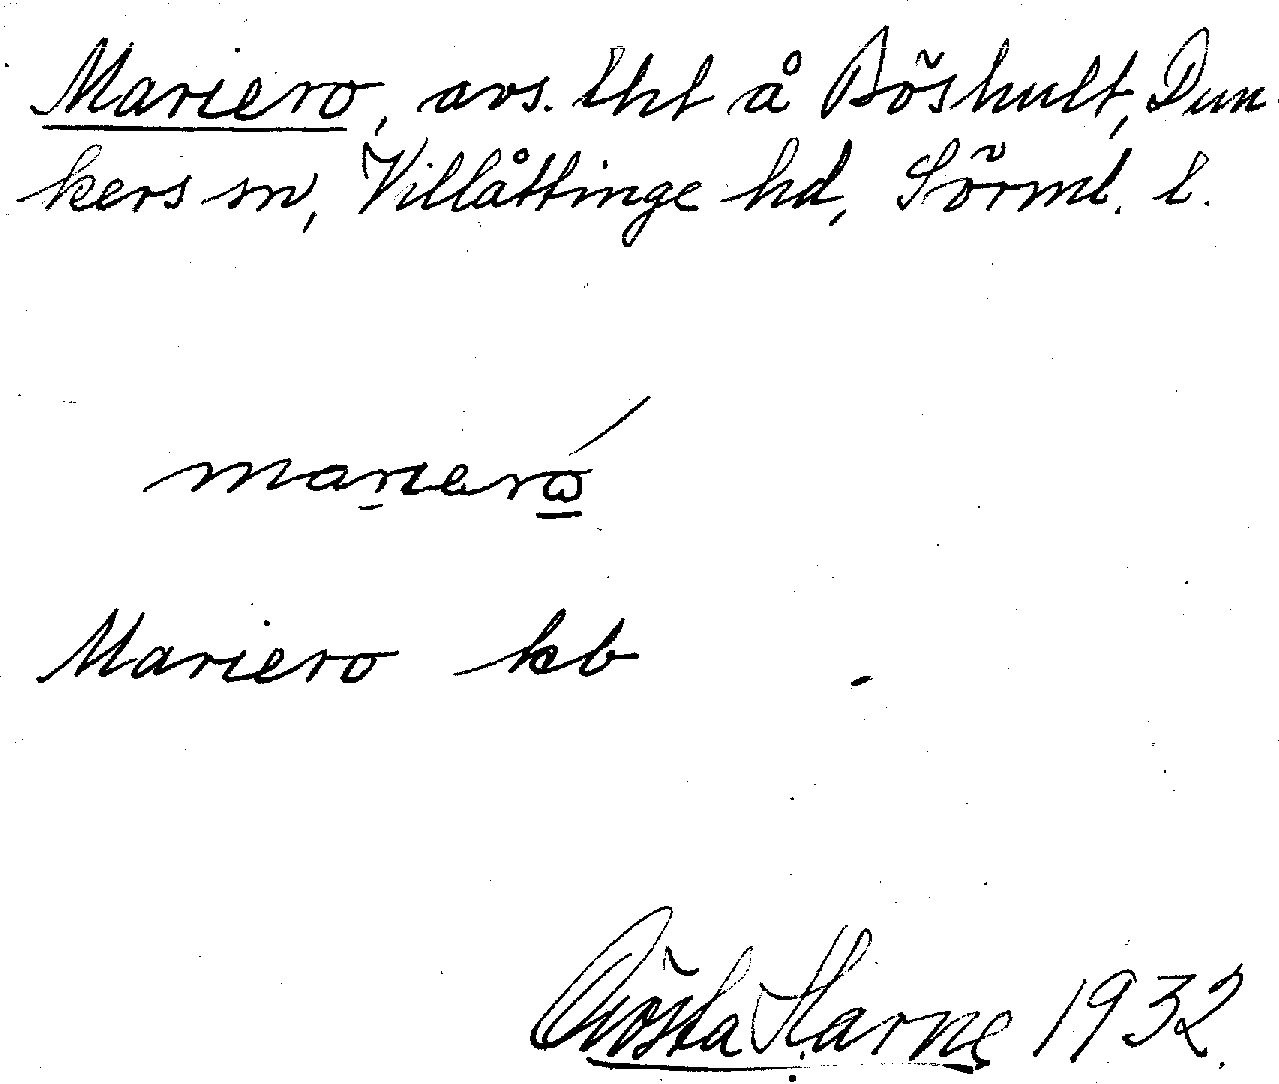 Mariero, avs. lht å Böshult, Dun-
kers sn, Villåttinge hd, Sörml. l.
marieró
Mariero kb
Gösta Harne 1932.